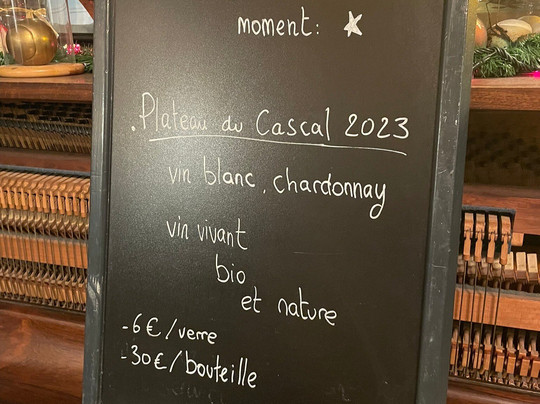 moment:
. Plateau du Cascal 2023
vin blanc, chardonnay
vin vivant
bio
et nature
-6€/verre
-30€/bouteille